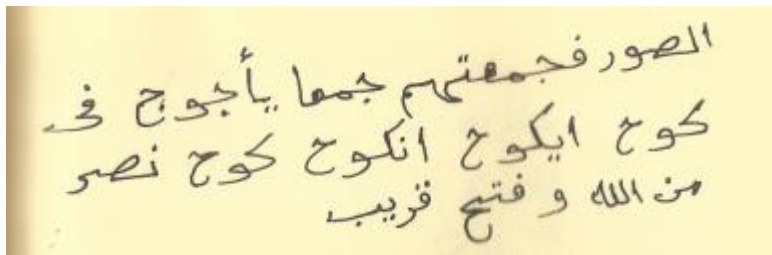 الصور فجمعتهم جمعا يأجوج فى
كوح ايكوح انكوح كوح نصر
من الله و فتح قريب